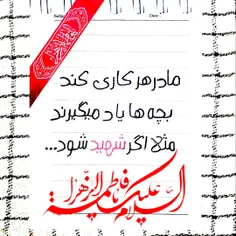 مادر هر کاری کند
بچه ها یاد میگیرند
مثلا اگر شهید شود...
السلام علیک یا فاطمة الزهرا